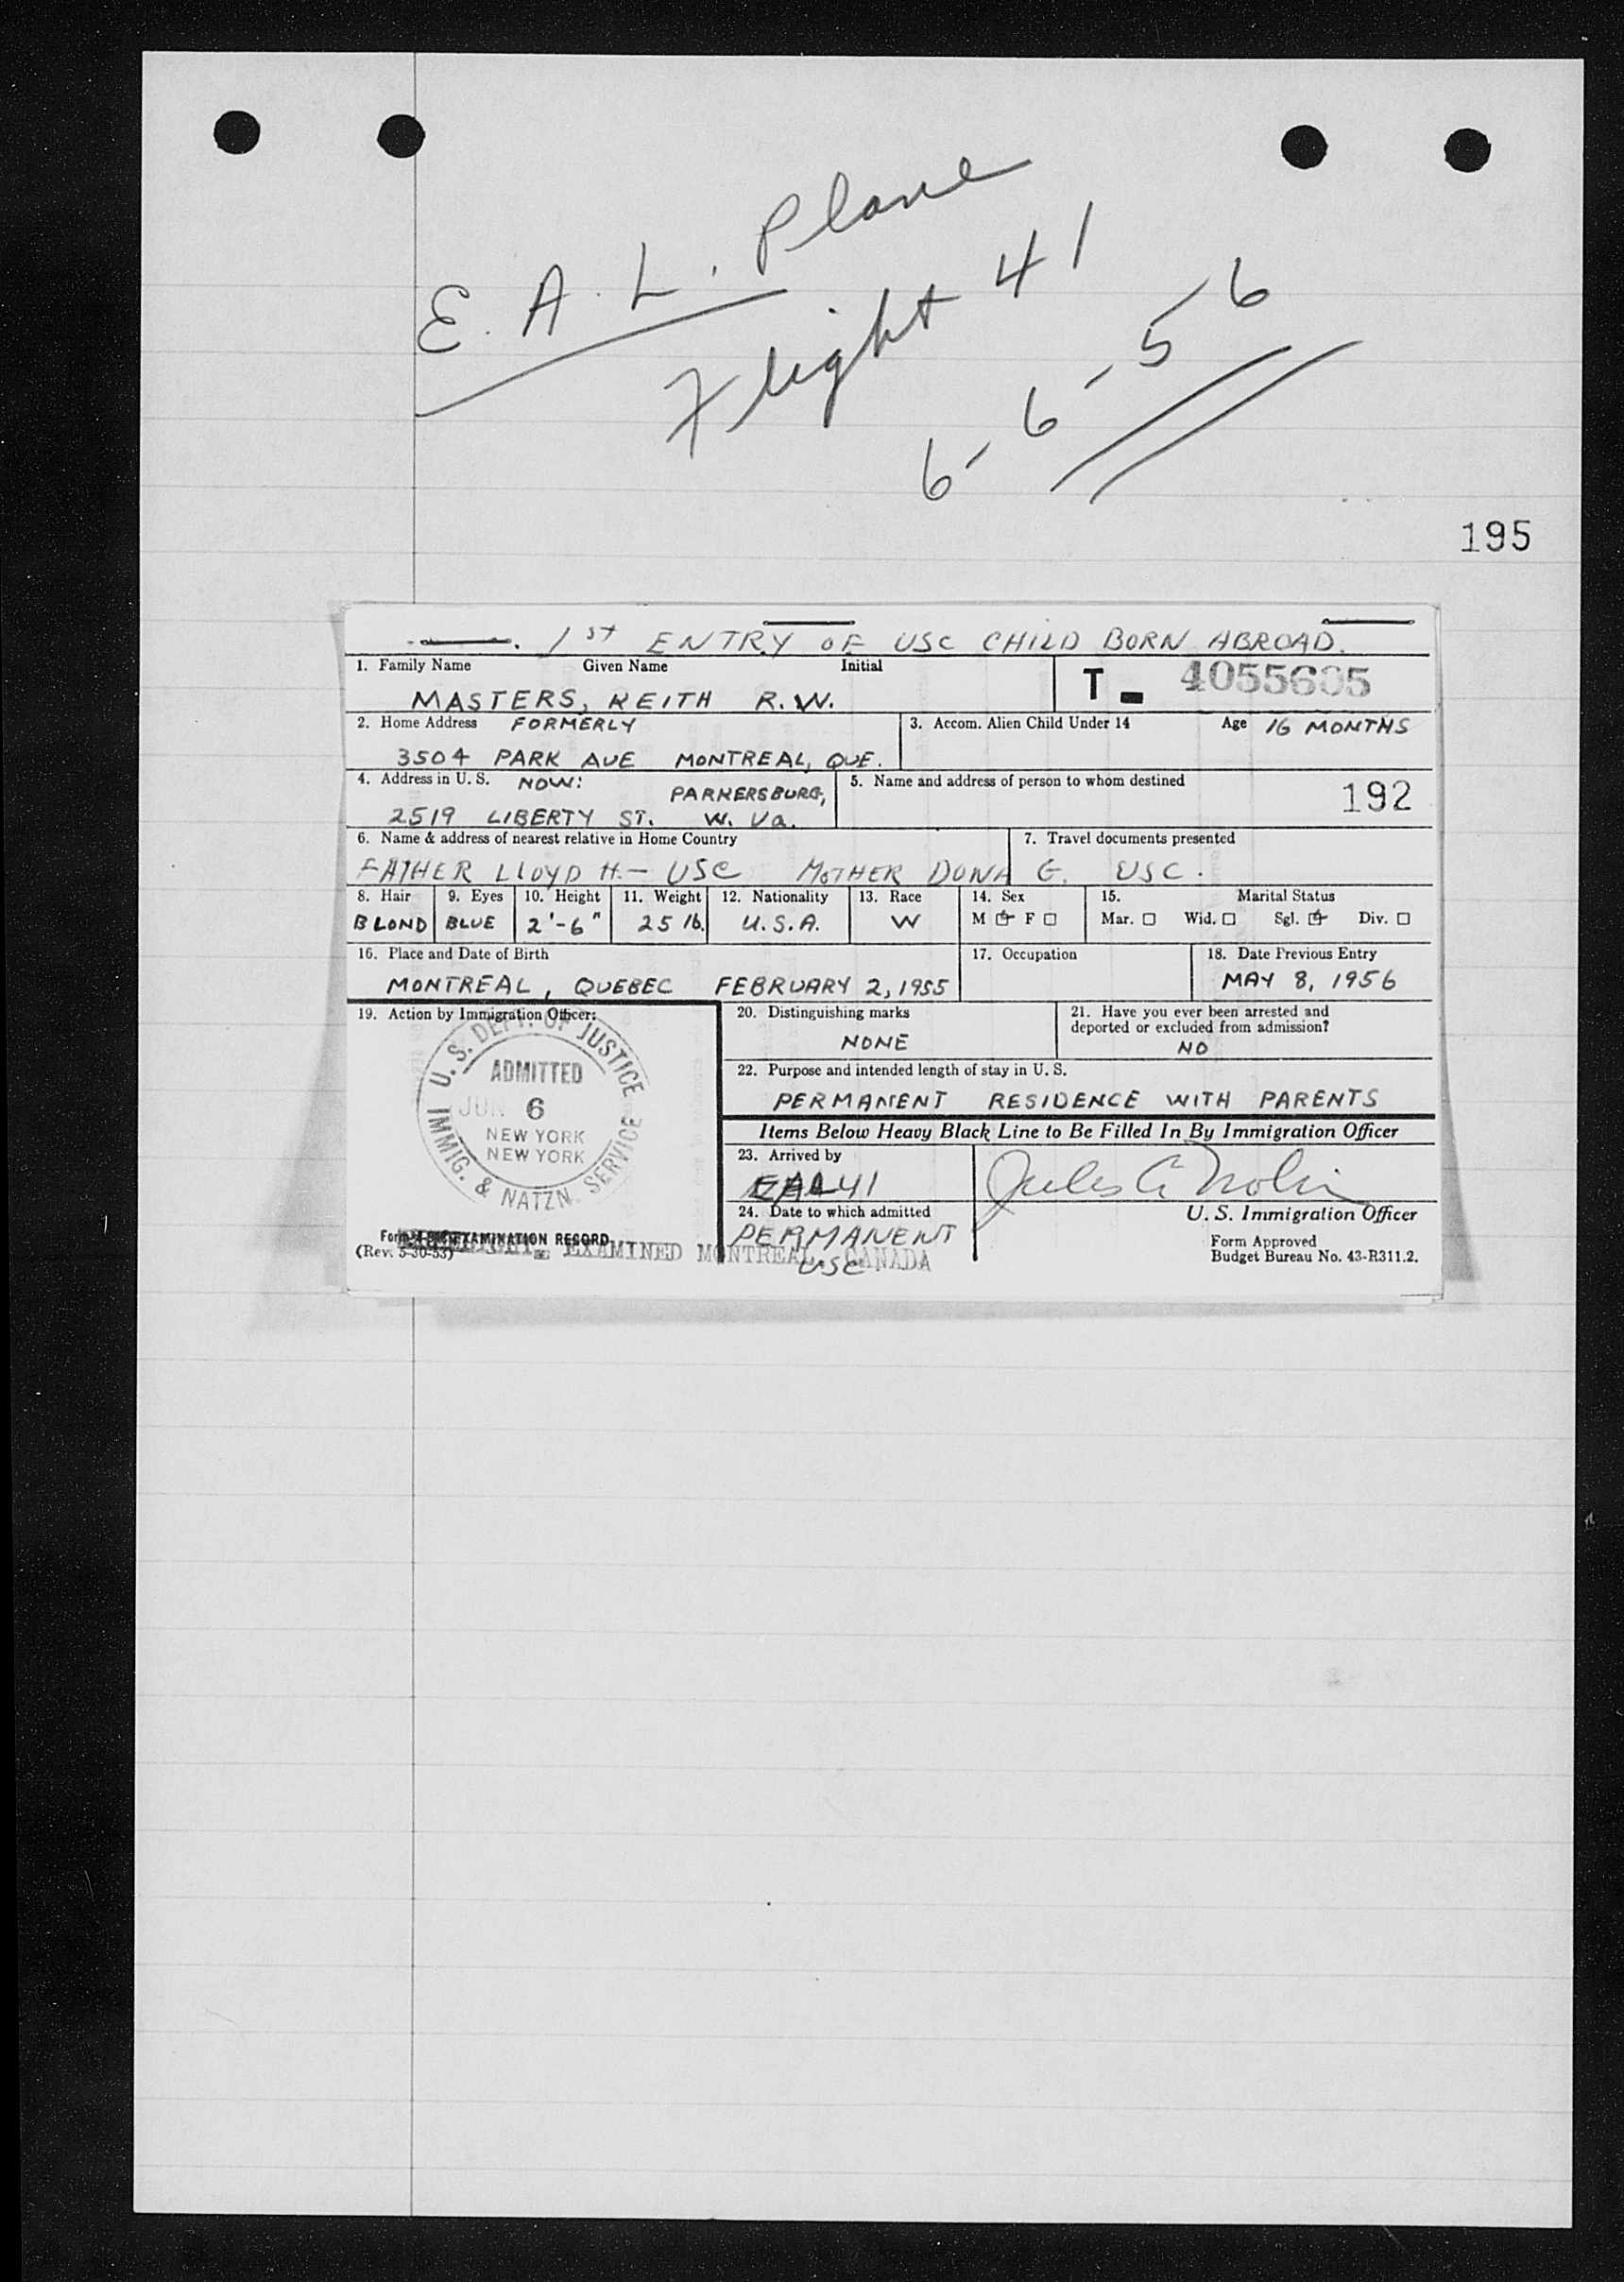 E. A. L. Plane
Flight 41
6-6-56
195
1st ENTRY OF USC CHILD BORN ABROAD.
1. Family Name Given Name Initial
MASTERS, KEITH R.W.
T - 4055605
2. Home Address FORMERLY
3504 PARK AVE MONTREAL, QUE.
3. Accom. Alien Child Under 14 Age 16 MONTHS
4. Address in U. S. NOW:
PARKERSBURG,
2519 LIBERTY ST. W. Va.
5. Name and address of person to whom destined
192
6. Name & address of nearest relative in Home Country
7. Travel documents presented
FATHER LLOYD H.- USC MOTHER DONA G. USC.
8. Hair 9. Eyes 10. Height 11. Weight 12. Nationality 13. Race 14. Sex 15. Marital Status
BLOND BLUE 2'-6" 25 lb. U.S.A. W M F Mar. Wid. Sgl. Div.
16. Place and Date of Birth 17. Occupation 18. Date Previous Entry
MONTREAL, QUEBEC FEBRUARY 2, 1955 MAY 8, 1956
19. Action by Immigration Officer:
U. S. DEPT. OF JUSTICE
ADMITTED
JUN 6
NEW YORK
NEW YORK
IMMIG. & NATZN. SERVICE
20. Distinguishing marks
NONE
21. Have you ever been arrested and
deported or excluded from admission?
NO
22. Purpose and intended length of stay in U. S.
PERMANENT RESIDENCE WITH PARENTS
Items Below Heavy Black Line to Be Filled In By Immigration Officer
23. Arrived by
EAL 41
Jules A Nolin
24. Date to which admitted
PERMANENT
USC
U. S. Immigration Officer
Form EXAMINATION RECORD
(Rev. 5-30-53)
EXAMINED MONTREAL, CANADA
Form Approved
Budget Bureau No. 43-R311.2.